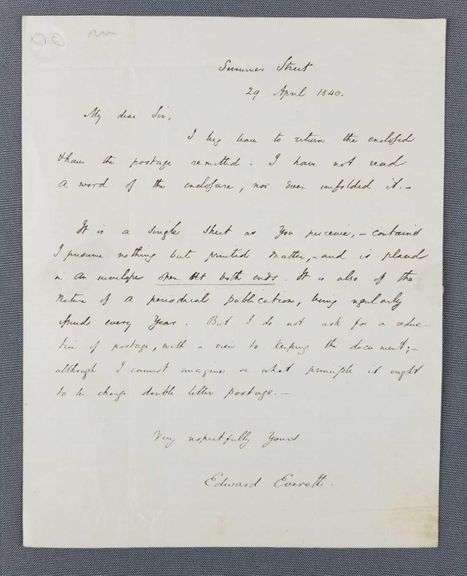 Summer Street
29 April 1840.
My dear Sir,
I beg leave to return the enclosed
& have the postage remitted. I have not read
a word of the enclosure, nor even unfolded it –
It is a single sheet as you perceive, – contained
I presume nothing but printed matter, – and is placed
in an envelope open at both ends. It is also of the
nature of a periodical publication, being regularly
every year. But I do not ask for a reduc-
tion of postage, with a view to keeping the document; –
although I cannot imagine on what principle it ought
to be charge double letter postage. –
Very respectfully Yours
Edward Everett.